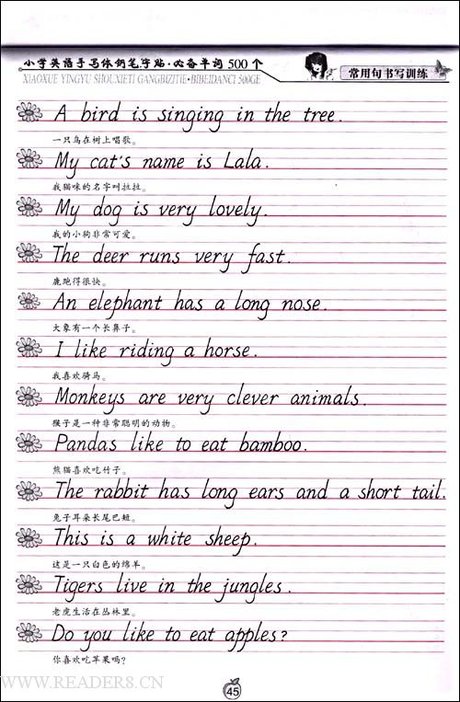 小学英语手写体钢笔字贴·必备单词500个
XIAOXUE YINGYU SHOUXIETI GANGBIZITIE·BIBEIDANCI 500GE
常用句书写训练
A bird is singing in the tree.
一只鸟在树上唱歌。
My cat's name is Lala.
我猫咪的名字叫拉拉。
My dog is very lovely.
我的小狗非常可爱。
The deer runs very fast.
鹿跑得很快。
An elephant has a long nose.
大象有一个长鼻子。
I like riding a horse.
我喜欢骑马。
Monkeys are very clever animals.
猴子是一种非常聪明的动物。
Pandas like to eat bamboo.
熊猫喜欢吃竹子。
The rabbit has long ears and a short tail.
兔子耳朵长尾巴短。
This is a white sheep.
这是一只白色的绵羊。
Tigers live in the jungles.
老虎生活在丛林里。
Do you like to eat apples?
你喜欢吃苹果吗?
WWW.READER8.CN
45